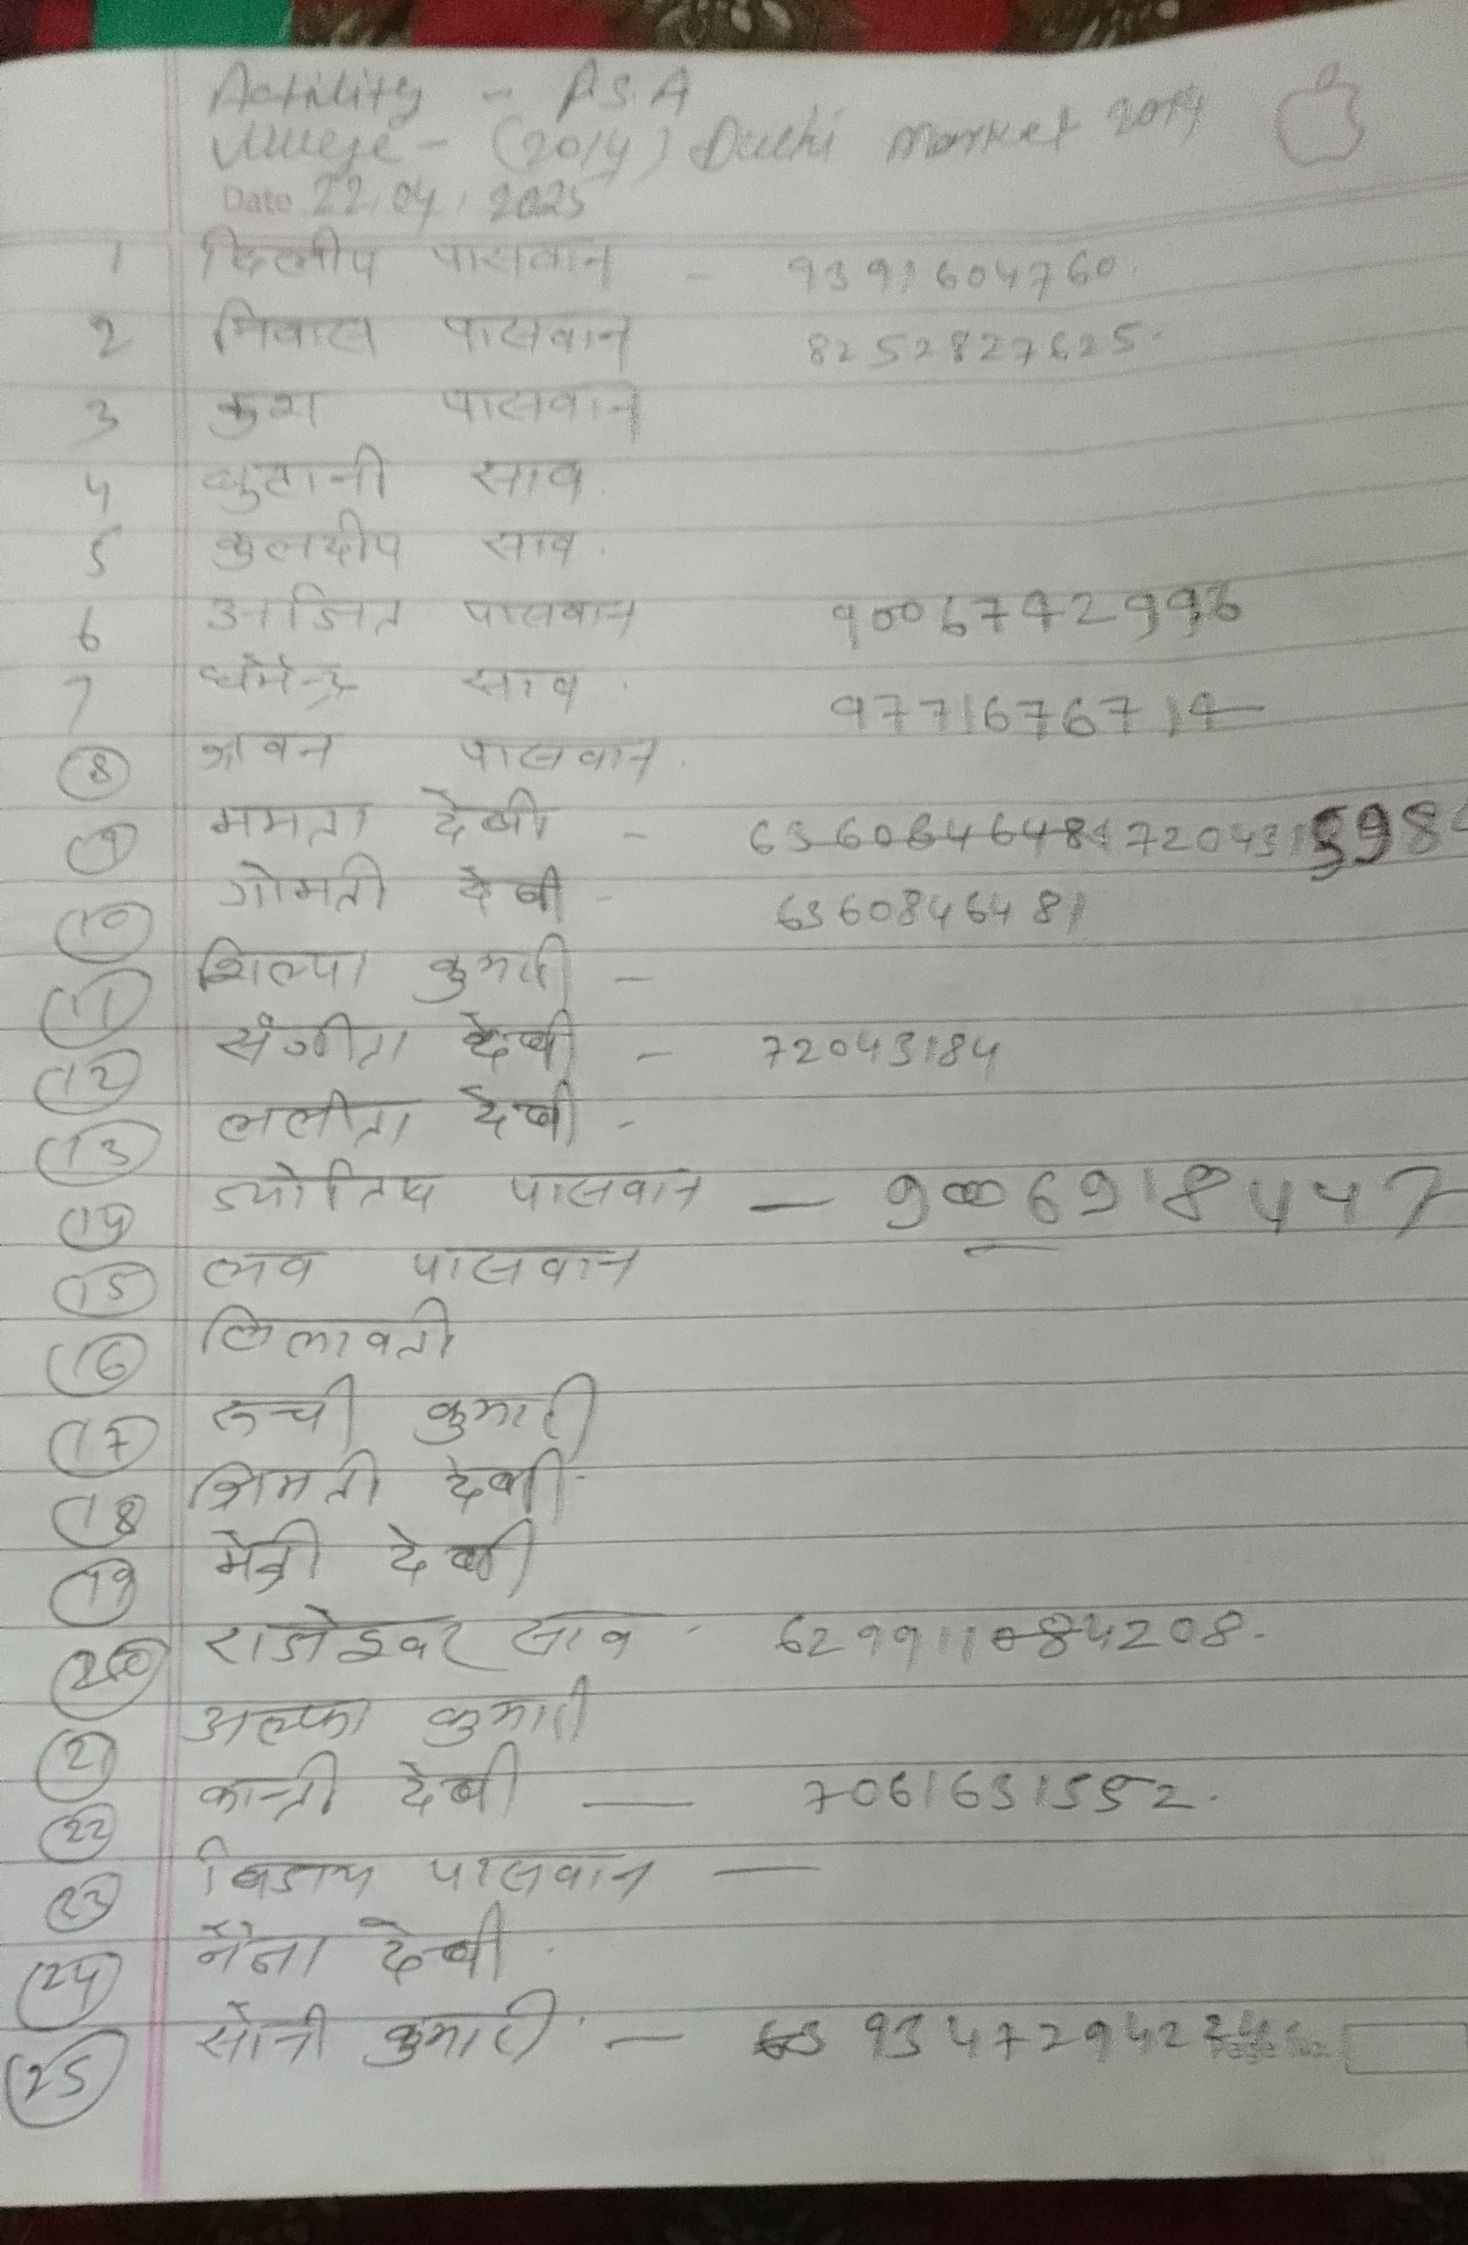 Actility - P.S.A
Villege - (2014) Delhi Market 2014
Date 22/04/2025
1 दिलीप पासवान - 9391604760.
2 निवास पासवान 8252827625.
3 कुश पासवान
4 साव
5 कुलदीप साव.
6 अजित पासवान
7 धर्मेन्द्र साव. 9771676714
8 श्रवन पासवान.
9 ममता देवी -
10 गोमती देवी - 6360846481
11 शिल्पा कुमारी -
12 संगीता देवी - 72043184
13 ललीता देवी -
14 ज्योतिष पासवान - 9006918447
15 लव पासवान
16 लिलावती
17 रुची कुमारी
18 श्रिमती देवी
19 देवी
20 राजेश्वर साव -
21 अल्फा कुमारी
22 कान्ती देवी — 7061631552.
23 विजय पासवान —
24 नैना देवी.
25 सोनी कुमारी. -